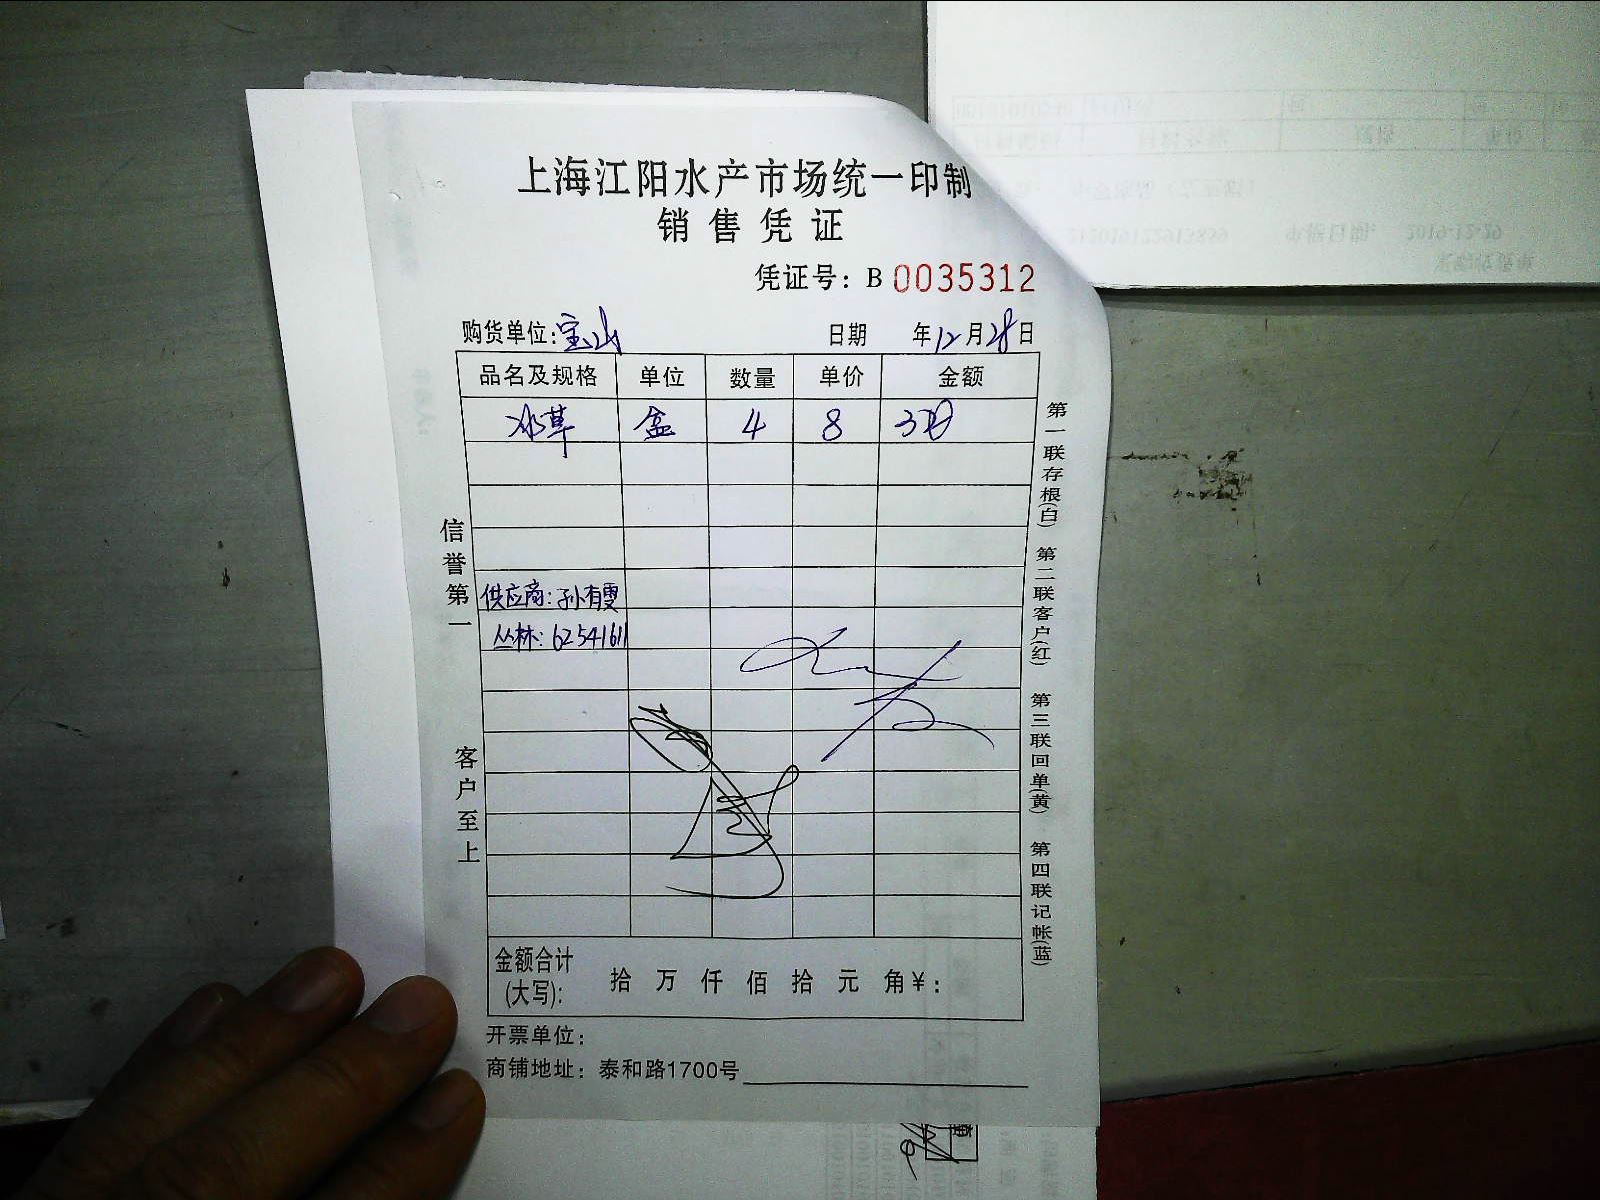 上海江阳水产市场统一印制
销售凭证
凭证号：B 0035312
购货单位：宝山 日期 年12月28日
品名及规格 单位 数量 单价 金额
冰草 盒 4 8
供应商：孙有雯
丛林：62541611
信誉第一
客户至上
第一联存根(白) 第二联客户(红) 第三联回单(黄) 第四联记帐(蓝)
金额合计(大写)： 拾 万 仟 佰 拾 元 角 ¥：
开票单位：
商铺地址：泰和路1700号